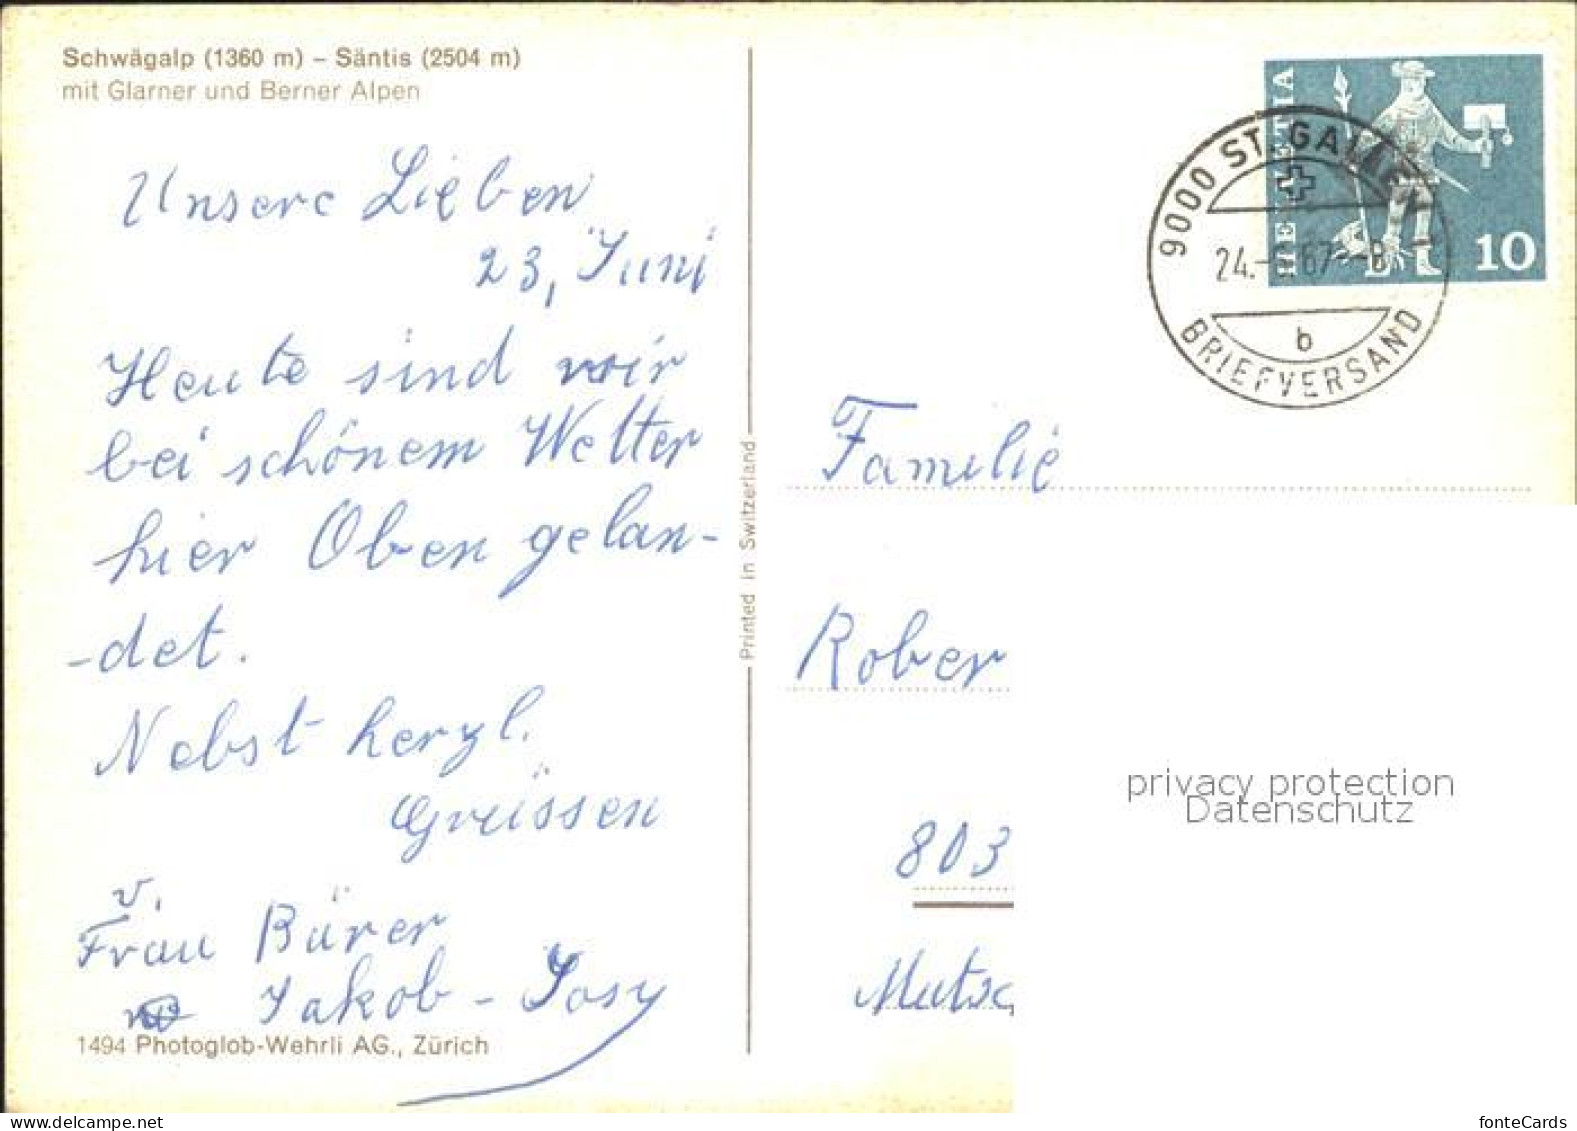 Schwägalp (1360 m) – Säntis (2504 m)
mit Glarner und Berner Alpen
Unsere Lieben
23, Juni
Heute sind wir
bei schönem Wetter
hier Oben gelan-
-det.
Nebst herzl.
Grüssen
v.
Frau Bürer
Jakob - Josy
1494 Photoglob-Wehrli AG., Zürich
Printed in Switzerland
HELVETIA
10
9000 ST. GALLEN 1
24.-6.67--8
b
BRIEFVERSAND
Familie
Rober
803
Mutsc
privacy protection
Datenschutz
fonteCards